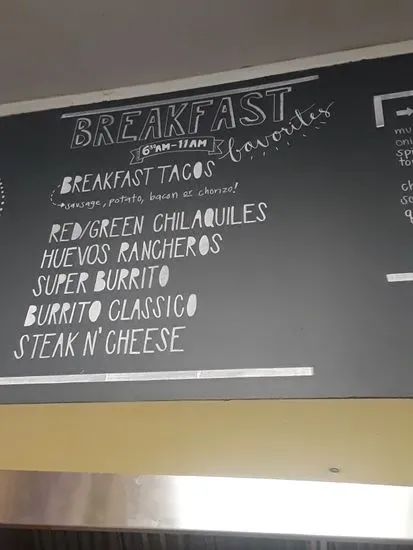 BREAKFAST
favorites
6:00AM-11AM
BREAKFAST TACOS
sausage, potato, bacon or chorizo!
RED/GREEN CHILAQUILES
HUEVOS RANCHEROS
SUPER BURRITO
BURRITO CLASSICO
STEAK N' CHEESE
mu
oni
spi
to
ch
so
q